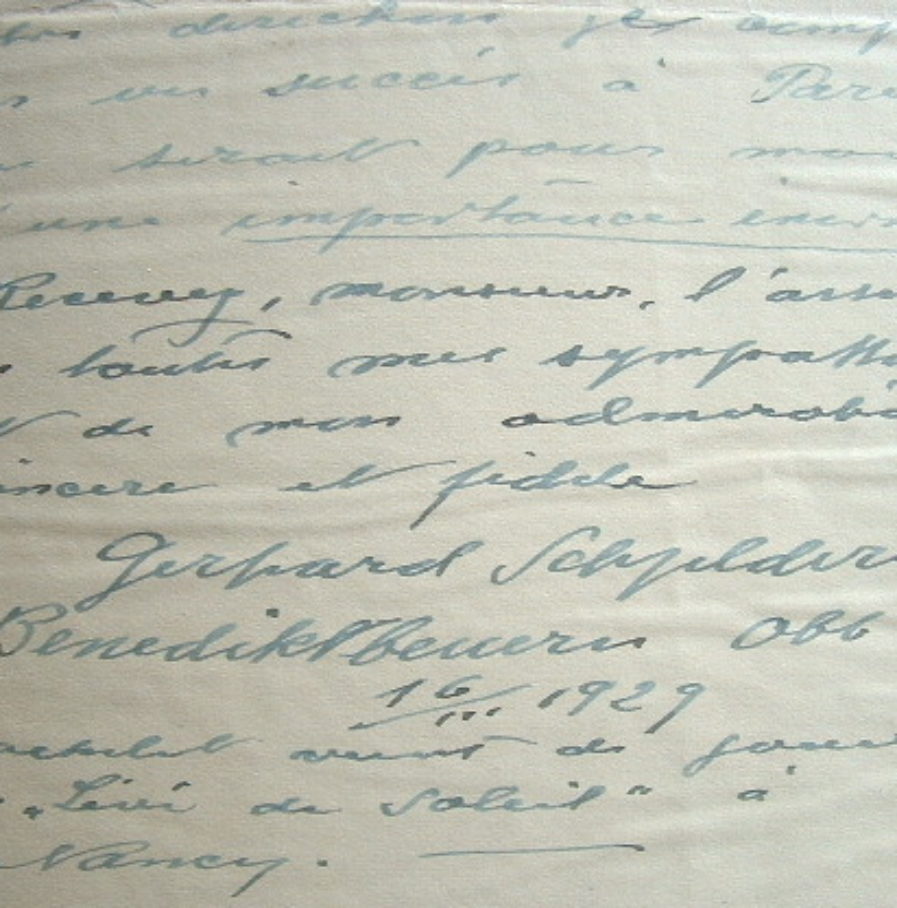 direction
un succès à Par
serait pour mo
une importance enor
Recevez, monsieur, l'assu
toutes mes sympath
de mon admirati
incere et fidèle
Gerhard Schjelderu
Benediktbeuern Obb
16/III 1929
vient de joue
„Levé de Soleil" à
Nancy.